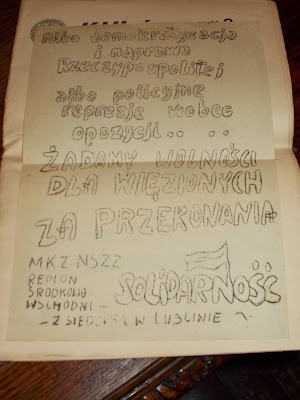 Albo demokratyzacja
i naprawa
Rzeczypospolitej
albo policyjne
represje wobec
opozycji.. ..
ŻĄDAMY WOLNOŚCI
DLA WIĘZIONYCH
ZA PRZEKONANIA
MKZ NSZZ
REGION
ŚRODKOWO
WSCHODNI -
SOLIDARNOŚĆ
- Z SIEDZIBĄ W LUBLINIE -